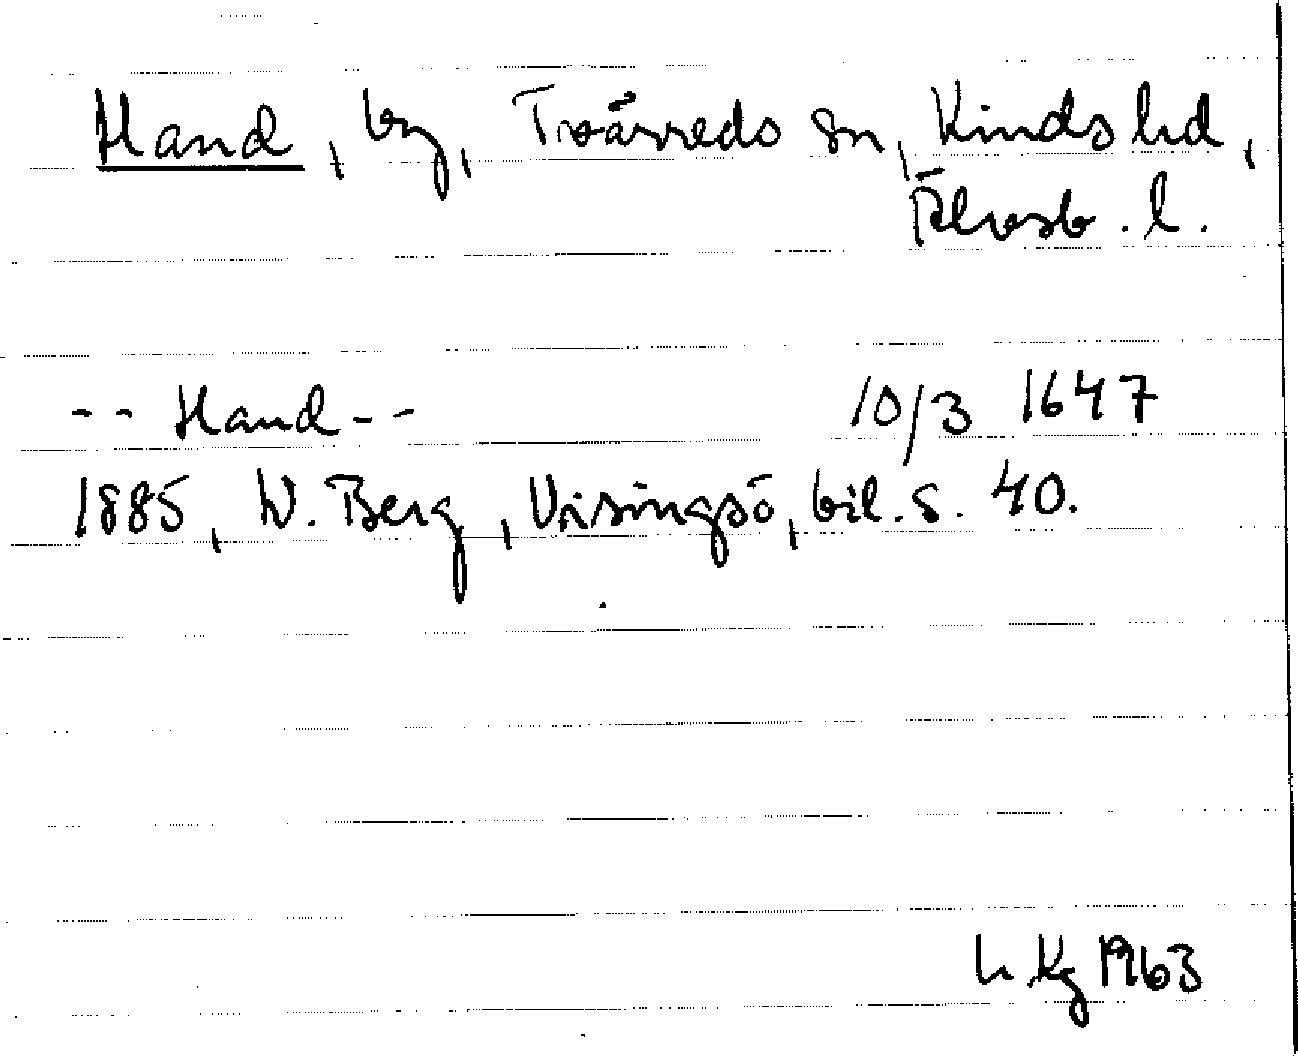 Hand, by, Tvärreds sn, Kinds hd,
Älvsb. l.
-- Hand -- 10/3 1647
1885, W. Berg, Visingsö, bil. s. 40.
L Kg 1963